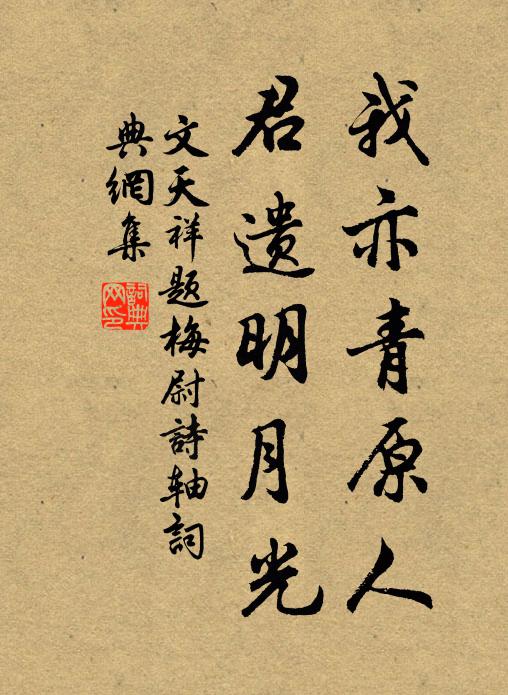 我亦青原人
君遗明月光
文天祥题梅尉詩轴詞
典網集
詞典网印